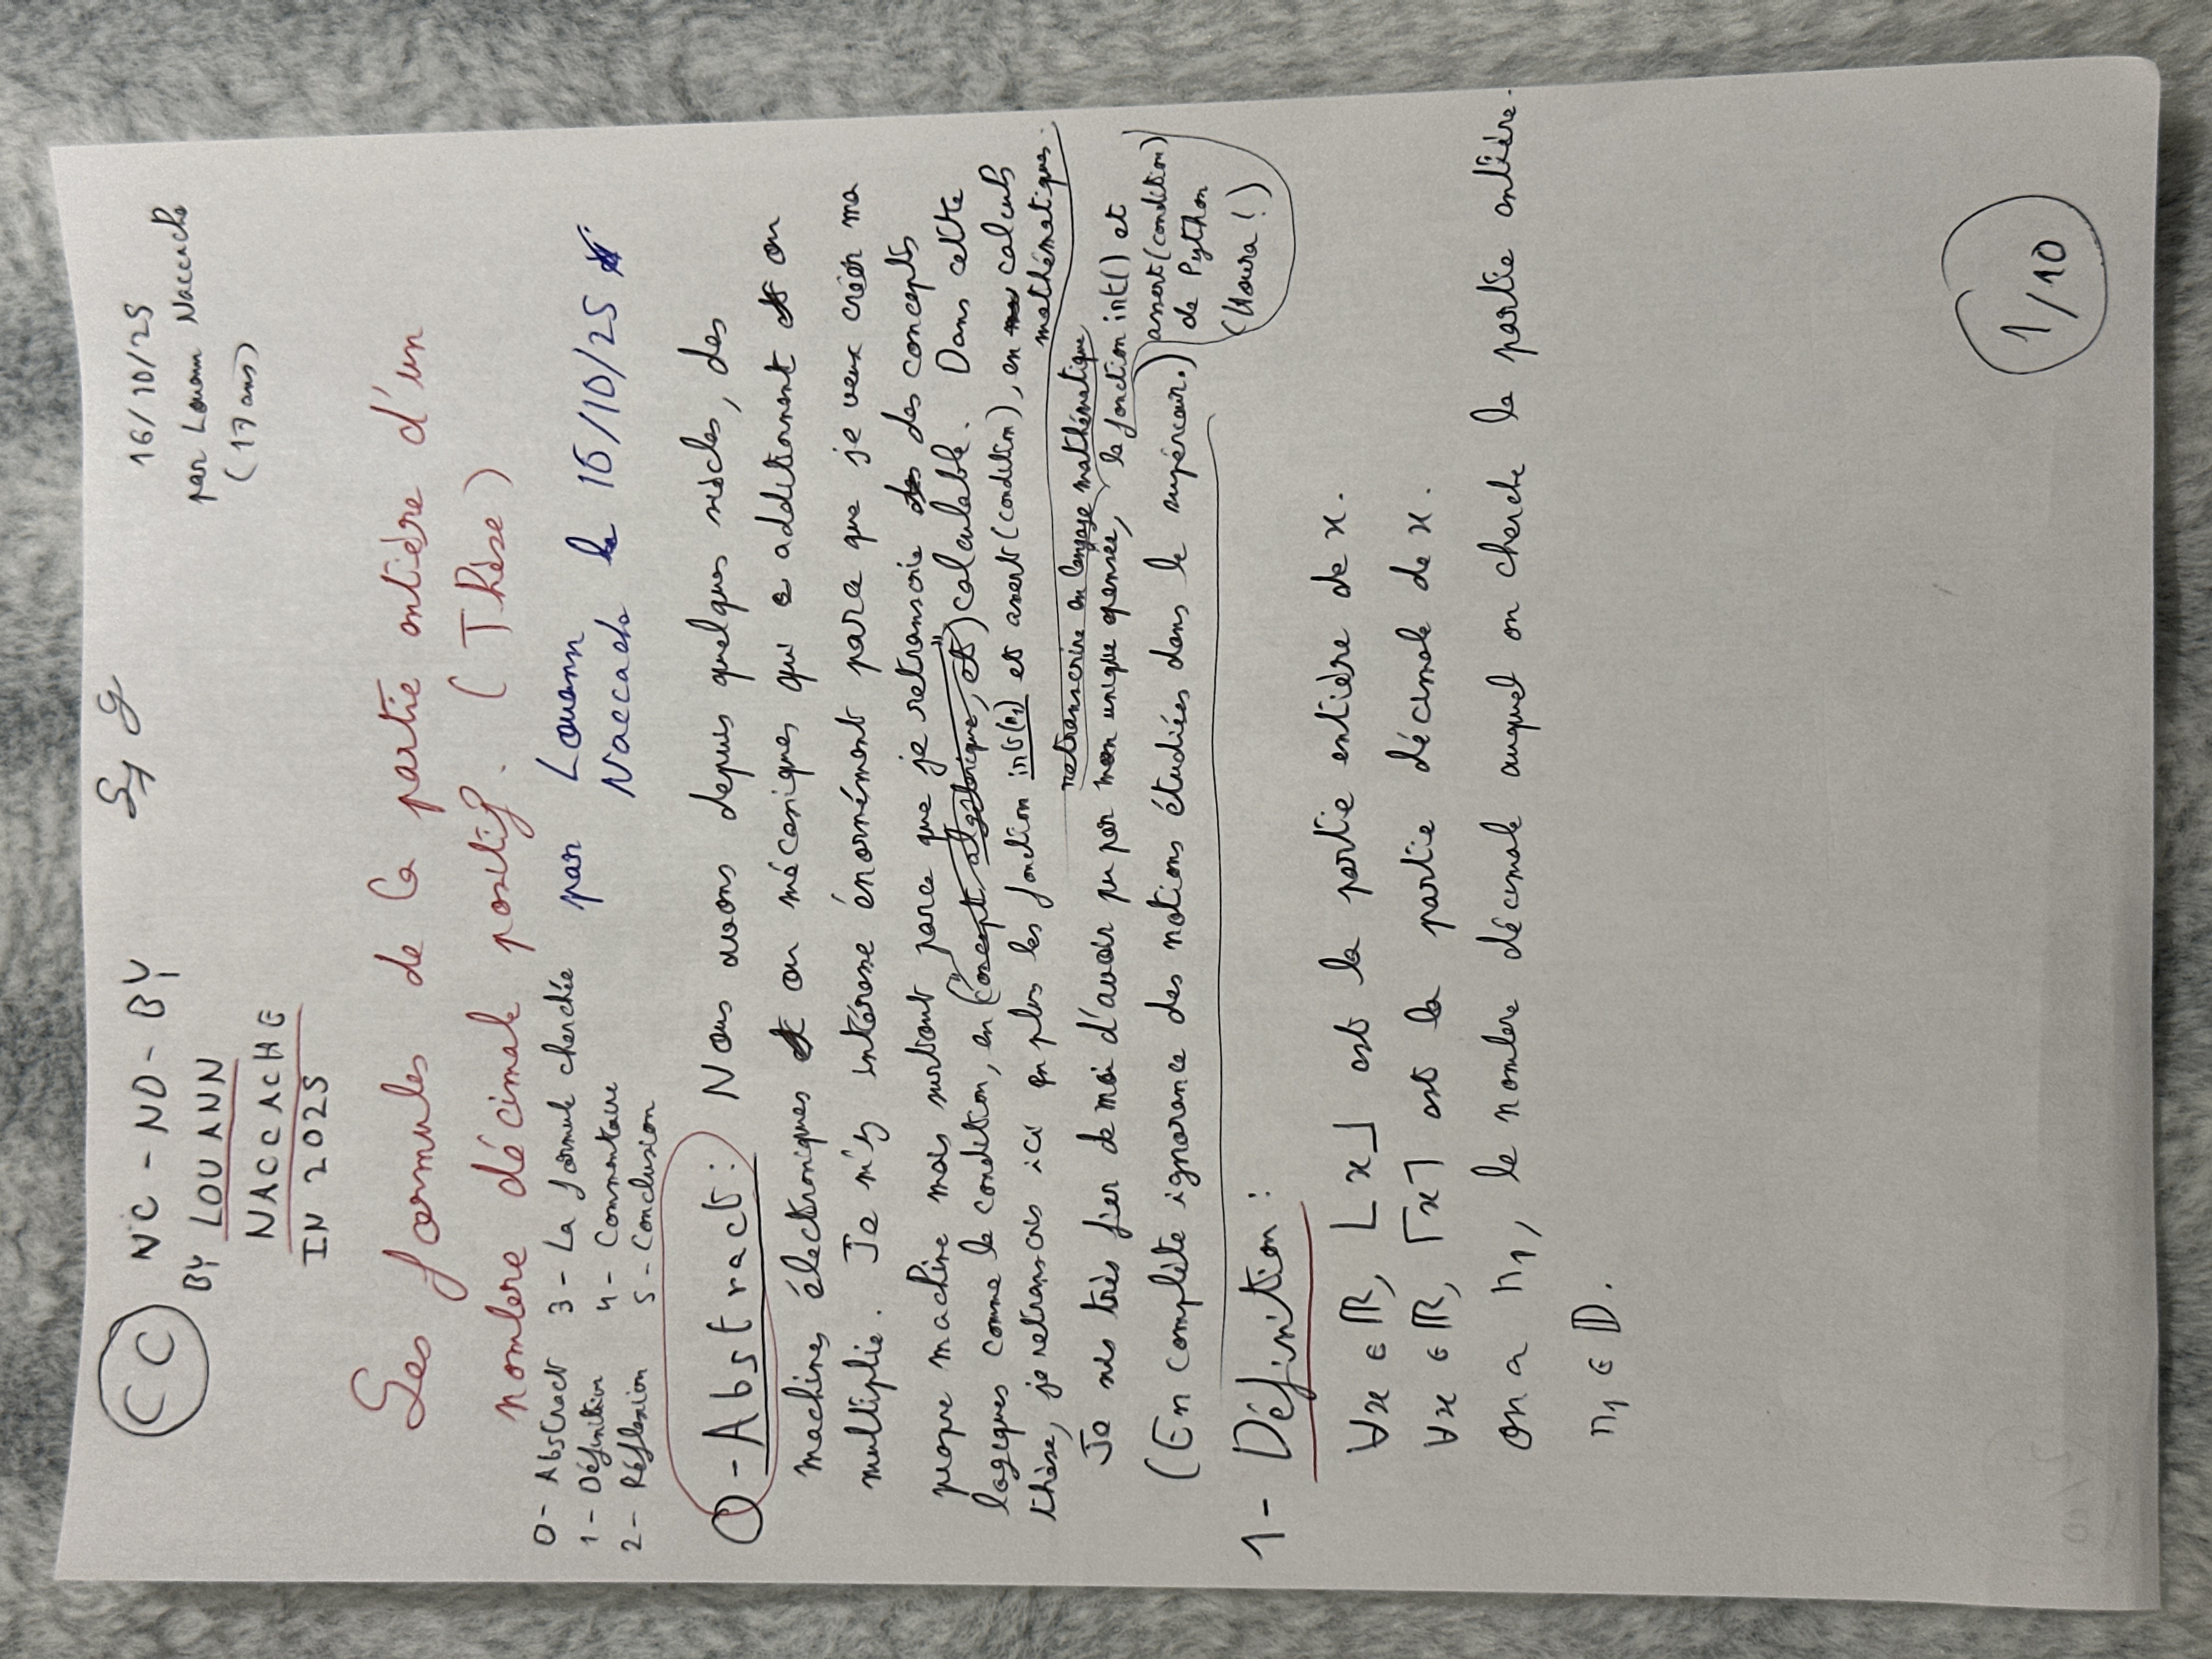 CC NC - ND - BY
BY LOUANN
NACCACHE
IN 2025
16/10/25
par Louann Naccache
(17 ans)
Les formules de la partie entière d'un
nombre décimale positif. (Thèse)
0 - Abstract
1 - Définition
2 - Réflexion
3 - La formule cherchée
4 - Commentaire
5 - Conclusion
par Louann
Naccache le 16/10/25
0 - Abstract : Nous avons depuis quelques siècles, des
machines électroniques ou mécaniques qui additionnent ou
multiplie. Je m'y intéresse énormément parce que je veux créer ma
propre machine mais surtout parce que je retranscrie des concepts
logiques comme la condition, en ("concept algébrique, et") calculable. Dans cette
thèse, je retranscris ici en plus les fonction int(n₁) et assert(condition), en calculs
mathématiques.
retranscrire en langage mathématique
Je suis très fier de moi d'avoir pu par mon unique pensée, la fonction int() et
assert(condition)
de Python
(Houra !)
(En complète ignorance des notions étudiées dans le supérieur.)
1 - Définition :
∀x ∈ ℝ, ⌊x⌋ est la partie entière de x.
∀x ∈ ℝ, ⌈x⌉ est la partie décimale de x.
on a n₁, le nombre décimale auquel on cherche la partie entière.
n₁ ∈ 𝔻.
1/10